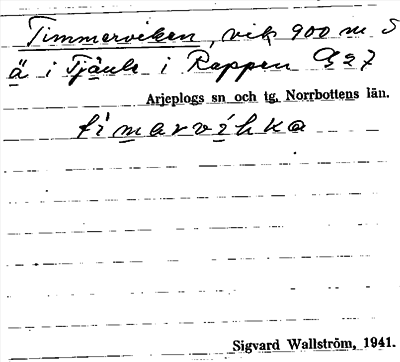 Timmerviken, vik 900 m S
ä i Tjäule i Rappen G27
Arjeplogs sn och tg, Norrbottens län.
timarvíhka
Sigvard Wallström, 1941.